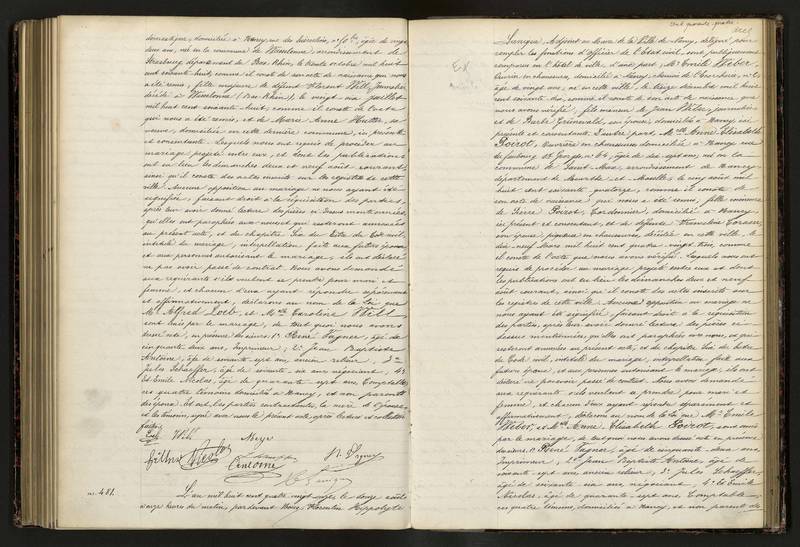 domestique, domiciliée à Nancy, rue des Dominicains, âgée de vingt
deux ans, née en la commune de Wasselonne, arrondissement de
Strasbourg département du Bas-Rhin, le trente octobre mil huit
cent soixante huit, comme il conste de son acte de naissance qui nous
a été remis, fille majeure de défunt Florent Will, journalier
décédé à Wasselonne (Bas-Rhin), le vingt six juillet
mil huit cent soixante huit, comme il conste de l'acte
qui nous a été remis, et de Marie Anne Hutter, sa
veuve, domiciliée en cette dernière commune, ici présente
et consentante. Lesquels nous ont requis de procéder au
mariage projeté entre eux, et dont les publications
ont eu lieu les dimanches deux et neuf août courant,
ainsi qu'il conste des actes inscrits sur les registres de cette
ville. Aucune opposition au mariage ne nous ayant été
signifiée, faisant droit à la réquisition des parties,
après leur avoir donné lecture des pièces ci-dessus mentionnées,
qu'elles ont paraphées avec nous et qui resteront annexées
au présent acte, et du chapitre Six du titre du Code civil,
intitulé du mariage, interpellation faite aux futurs époux
et aux personnes autorisant le mariage, ils ont déclaré
ne pas avoir passé de contrat. Nous avons demandé
aux requérants s'ils veulent se prendre pour mari et
femme, et chacun d'eux ayant répondu séparément
et affirmativement, déclarons au nom de la loi que
Mr Alfred Loeb, et Mlle Caroline Will
sont unis par le mariage, de tout quoi nous avons
dressé acte, en présence des sieurs 1° René Fagner, âgé de
cinquante deux ans, Imprimeur, 2° Jean Baptiste
Antoine, âgé de soixante sept ans, ancien relieur, 3°
Jules Schaeffer, âgé de soixante six ans négociant, 4°
Et Emile Nicolas, âgé de quarante sept ans, Comptable
ces quatre témoins domiciliés à Nancy, et non parents
des époux. Et ont les parties contractantes, la mère de l'épouse
et les témoins, signé avec nous le présent acte après lecture et collation
faites.
Loeb Will
Nicolas
Antoine
R. Fagner
no. 481.
L'an mil huit cent quatre vingt onze le douze août
à onze heures du matin, par devant Nous, Florentin Hippolyte
Adjoint au Maire de la Ville de Nancy, délégué pour
remplir les fonctions d'officier de l'Etat civil, sont publiquement
comparus en l'hôtel de ville, d'une part, Mr Emile Weber,
Ouvrier en chaussures, domicilié à Nancy,
âgé de vingt ans, né en cette ville, le treize
mil huit
comme il conste de son acte de naissance que
nous avons vérifié, fils mineur de Jean Weber, journalier
et de Barbe Grünewald, son épouse, domiciliés à Nancy ici
présents et consentants. D'autre part, Mlle Anne Elisabeth
Poirot, Ouvrière en chaussures, domiciliée à Nancy rue
du faubourg St Georges, n° 64, âgée de dix sept ans, née en la
commune de Saint Max, arrondissement de Nancy
département de Meurthe et Moselle, le cinq août mil
huit cent soixante quatorze, comme il conste de
son acte de naissance qui nous a été remis, fille mineure
de Pierre Poirot, Cordonnier, domicilié à Nancy
ici présent et consentant, et de défunte Françoise
son épouse, piqueuse en chaussures, décédée en cette ville, le
dix neuf Mars mil huit cent quatre vingt
comme
il conste de l'acte que nous avons vérifié. Lesquels nous ont
requis de procéder au mariage projeté entre eux et dont
les publications ont eu lieu les dimanches deux et neuf
août courant, ainsi qu'il conste des actes inscrits sur
les registres de cette ville. Aucune opposition au mariage ne
nous ayant été signifiée, faisant droit à la réquisition
des parties, après leur avoir donné lecture des pièces ci-
dessus mentionnées, qu'elles ont paraphées avec nous, et qui
resteront annexées au présent acte, et du chapitre Six du titre
du Code civil, intitulé du mariage, interpellation faite aux
futurs époux, et aux personnes autorisant le mariage, ils ont
déclaré ne pas avoir passé de contrat. Nous avons demandé
aux requérants s'ils veulent se prendre pour mari et
femme, et chacun d'eux ayant répondu séparément et
affirmativement, déclarons au nom de la loi que Mr Emile
Weber, et Mlle Anne Elisabeth Poirot, sont unis
par le mariage, de tout quoi nous avons dressé acte en présence
des sieurs 1° René Fagner, âgé de cinquante deux ans
Imprimeur, 2° Jean Baptiste Antoine, âgé de
soixante sept ans ancien relieur, 3° Jules Schaeffer,
âgé de soixante six ans négociant, 4° Et Emile
Nicolas, âgé de quarante sept ans, Comptable,
ces quatre témoins, domiciliés à Nancy, et non parents des